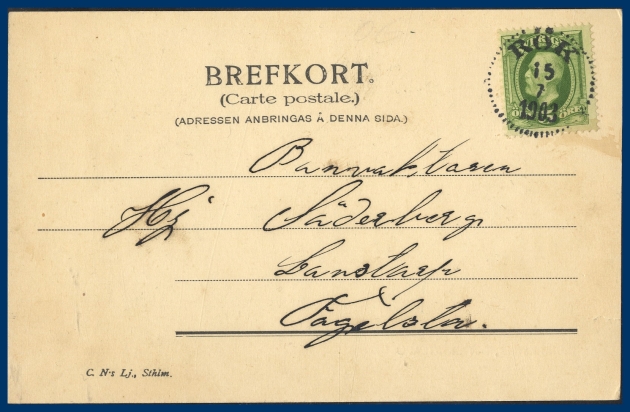 SVERIGE
RÖK
15
7
1903
BREFKORT.
(Carte postale.)
(ADRESSEN ANBRINGAS Å DENNA SIDA.)
Banvaktaren
Hj Söderberg
Fågelsta.
C. N:s Lj., Sthlm.